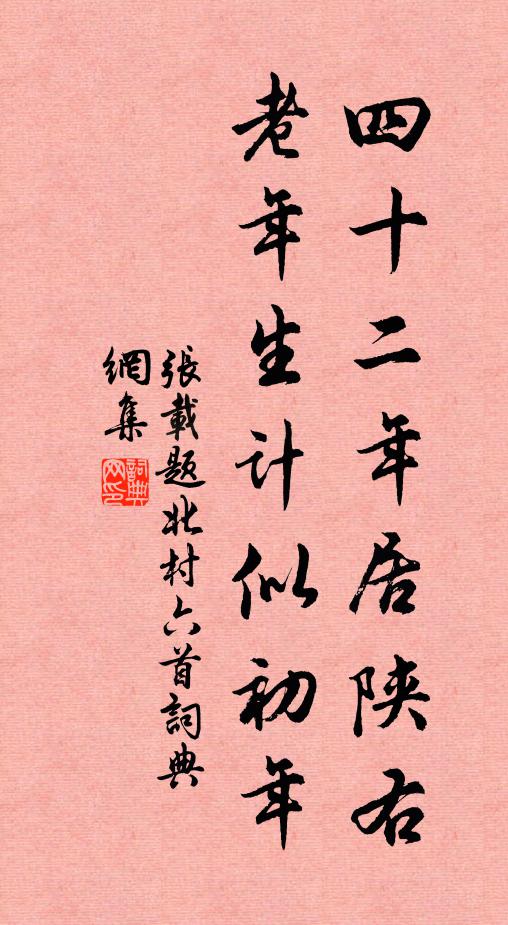 四十二年居陝右
老年生計似初年
張載题北村六首詞典
網集
詞典
网印